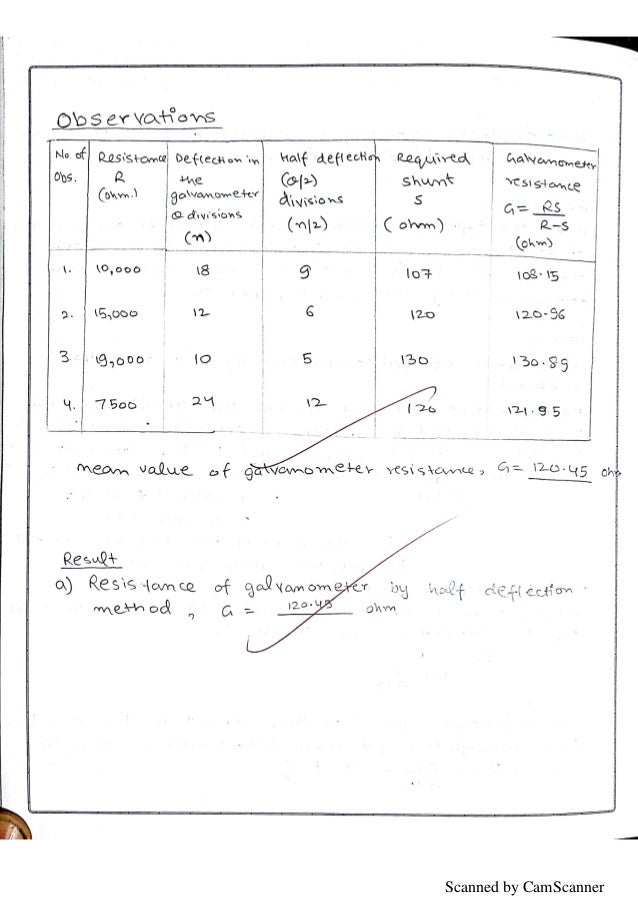 Observations
No. of Obs. | Resistance R (ohm.) | Deflection in the galvanometer θ divisions (n) | Half deflection (θ/2) divisions (n/2) | Required shunt S (ohm) | Galvanometer resistance G = RS / R-S (ohm)
1. | 10,000 | 18 | 9 | 107 | 108.15
2. | 15,000 | 12 | 6 | 120 | 120.96
3. | 19,000 | 10 | 5 | 130 | 130.89
4. | 7500 | 24 | 12 | 120 | 121.95
mean value of galvanometer resistance, G = 120.45 ohm
Result
a) Resistance of galvanometer by half deflection
method, G = 120.45 ohm
Scanned by CamScanner